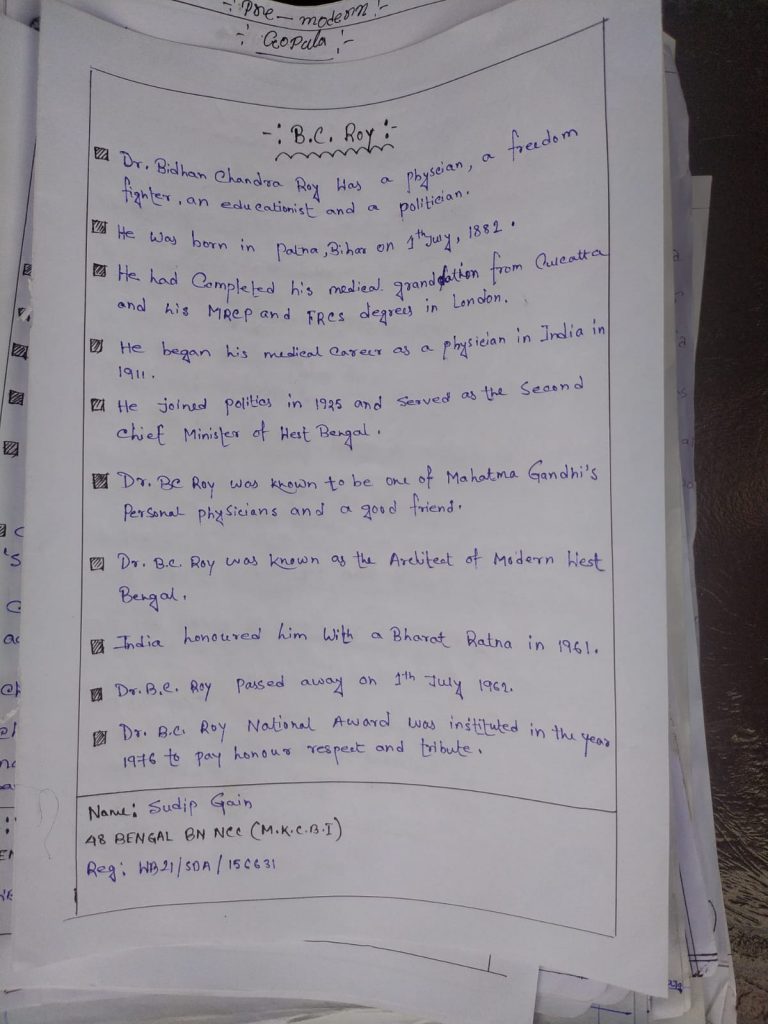 -: Pre-modern :-
-: Gopala :-
-: B.C. Roy :-
Dr. Bidhan Chandra Roy Was a physcian, a freedom
fighter, an educationist and a politician.
He was born in Patna, Bihar on 1th July, 1882.
He had Completed his medical from Cucatta
and his MRCP and FRCS degrees in London.
He began his medical Career as a physician in India in
1911.
He joined politics in 1925 and served as the Second
Chief Minister of West Bengal.
Dr. BC Roy was known to be one of Mahatma Gandhi's
Personal physicians and a good friend.
Dr. B.C. Roy was known as the Architect of Modern West
Bengal.
India honoured him With a Bharat Ratna in 1961.
Dr. B.C. Roy Passed away on 1th July 1962.
Dr. B.C. Roy National Award was instituted in the year
1976 to pay honour respect and tribute.
Name: Sudip Gain
48 BENGAL BN NCC (M.K.C.B.I)
Reg: WB21/SDA/156631